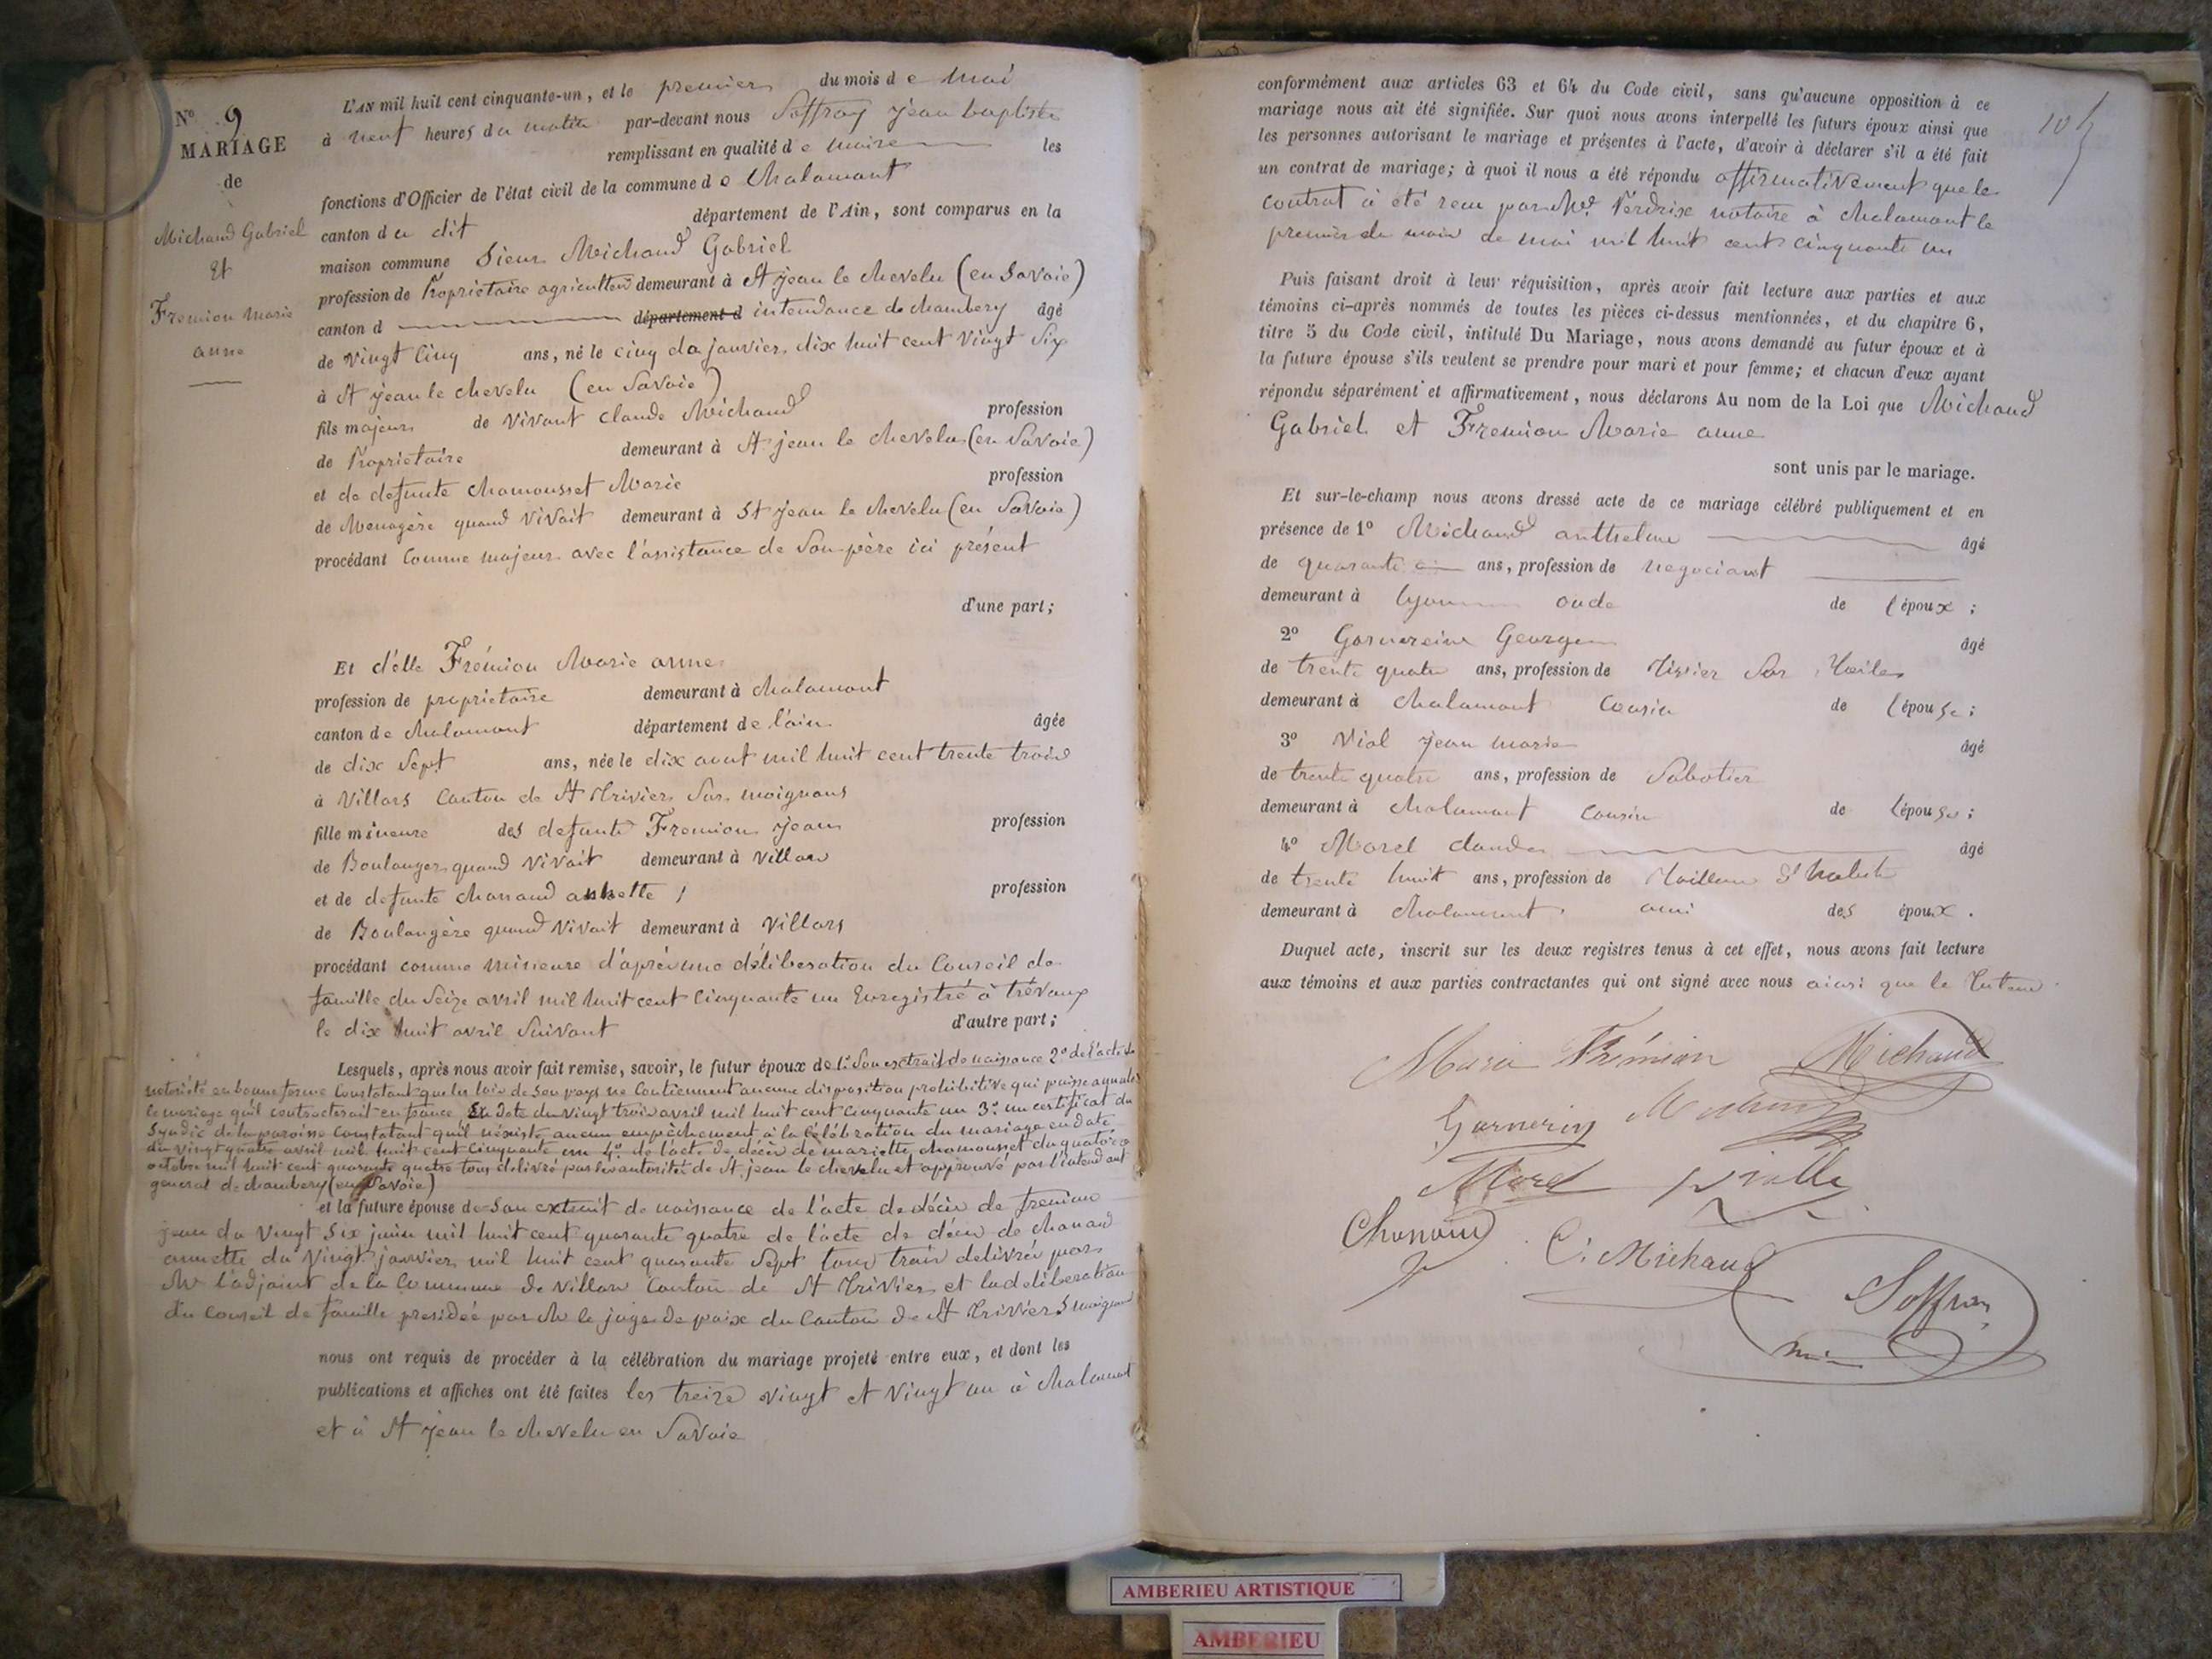 N° 9
MARIAGE
de
Michaud Gabriel
Et
Fremion Marie
anne
L'AN mil huit cent cinquante-un, et le premier du mois d e mai
à neuf heures du matin par-devant nous Soffray jean baptiste
remplissant en qualité d e maire les
fonctions d'Officier de l'état civil de la commune d e Chalamont
canton d u dit département de l'Ain, sont comparus en la
maison commune Sieur Michaud Gabriel
profession de Propriétaire agriculteur demeurant à St jean le chevelu (en Savoie)
canton d département d intendance de chambery âgé
de vingt cinq ans, né le cinq de janvier dix huit cent vingt Six
à St jean le chevelu (en Savoie)
fils majeur de vivant Claude Michaud profession
de Propriétaire demeurant à St jean le chevelu (en Savoie)
et de defunte chamousset Marie profession
de Menagère quand vivait demeurant à St jean le chevelu (en Savoie)
procédant Comme majeur avec l'assistance de Son père ici présent
d'une part;
Et d'elle Frémion Marie anne
profession de proprietaire demeurant à chalamont
canton de chalamont département de l'ain âgée
de dix Sept ans, née le dix aout mil huit cent trente trois
à Villars Canton de St Trivier Sur moignans
fille mineure des defunts Fremion jean profession
de Boulanger quand vivait demeurant à Villars
et de defunte chanaud annette profession
de Boulangère quand vivait demeurant à Villars
procédant comme mineure d'après une délibération du Conseil de
famille du Seize avril mil huit cent Cinquante un Enregistré à trévoux
le dix huit avril Suivant d'autre part;
Lesquels, après nous avoir fait remise, savoir, le futur époux de 1° Son extrait de naissance 2° de l'acte de
notoriété en bonne forme Constatant que les lois de Son pays ne Contiennent aucune disposition prohibitive qui puisse annuler
le mariage qu'il contracterait en france En date du vingt trois avril mil huit cent cinquante un 3° un certificat du
Syndic de la paroisse Constatant qu'il n'existe aucun empêchement à la Célébration du mariage en date
du vingt quatre avril mil huit cent Cinquante un 4° de l'acte de décès de mariette chamousset du quatorze
octobre mil huit cent quarante quatre tous délivré par les autorités de St jean le chevelu et approuvé par l'intendant
général de chambery (en Savoie)
et la future épouse de Son extrait de naissance de l'acte de décès de fremion
jean du vingt Six juin mil huit cent quarante quatre de l'acte de décès de chanaud
annette du Vingt janvier mil huit cent quarante Sept tous trois delivrés par
Mr l'adjoint de la Commune de Villars Canton de St Trivier et la deliberation
du Conseil de famille presidée par Mr le juge de paix du Canton de St Trivier S moignans
nous ont requis de procéder à la célébration du mariage projeté entre eux, et dont les
publications et affiches ont été faites les treize vingt et vingt un à chalamont
et à St jean le chevelu en Savoie
conformément aux articles 63 et 64 du Code civil, sans qu'aucune opposition à ce
mariage nous ait été signifiée. Sur quoi nous avons interpellé les futurs époux ainsi que
les personnes autorisant le mariage et présentes à l'acte, d'avoir à déclarer s'il a été fait
un contrat de mariage; à quoi il nous a été répondu affirmativement que le
contrat à été reçu par Me Perdrix notaire à chalamont le
premier du mois de mai mil huit cent cinquante un
Puis faisant droit à leur réquisition, après avoir fait lecture aux parties et aux
témoins ci-après nommés de toutes les pièces ci-dessus mentionnées, et du chapitre 6,
titre 5 du Code civil, intitulé Du Mariage, nous avons demandé au futur époux et à
la future épouse s'ils veulent se prendre pour mari et pour femme; et chacun d'eux ayant
répondu séparément et affirmativement, nous déclarons Au nom de la Loi que Michaud
Gabriel et Fremion Marie anne
sont unis par le mariage.
Et sur-le-champ nous avons dressé acte de ce mariage célébré publiquement et en
présence de 1° Michaud anthelme âgé
de quarante ans, profession de negociant
demeurant à Lyon oncle de l'époux;
2° Garnereine George âgé
de trente quatre ans, profession de Tissier Sur Toiles
demeurant à Chalamont Cousin de l'épouse;
3° Vial jean marie âgé
de trente quatre ans, profession de Sabotier
demeurant à chalamont Cousin de l'épouse;
4° Morel claude âgé
de trente huit ans, profession de Tailleur d'habits
demeurant à chalamont ami des époux.
Duquel acte, inscrit sur les deux registres tenus à cet effet, nous avons fait lecture
aux témoins et aux parties contractantes qui ont signé avec nous ainsi que le Tuteur
Marie Frémion Michaud
Garnerin Michaud
Morel
C. Michaud
Soffray
AMBERIEU ARTISTIQUE
AMBERIEU